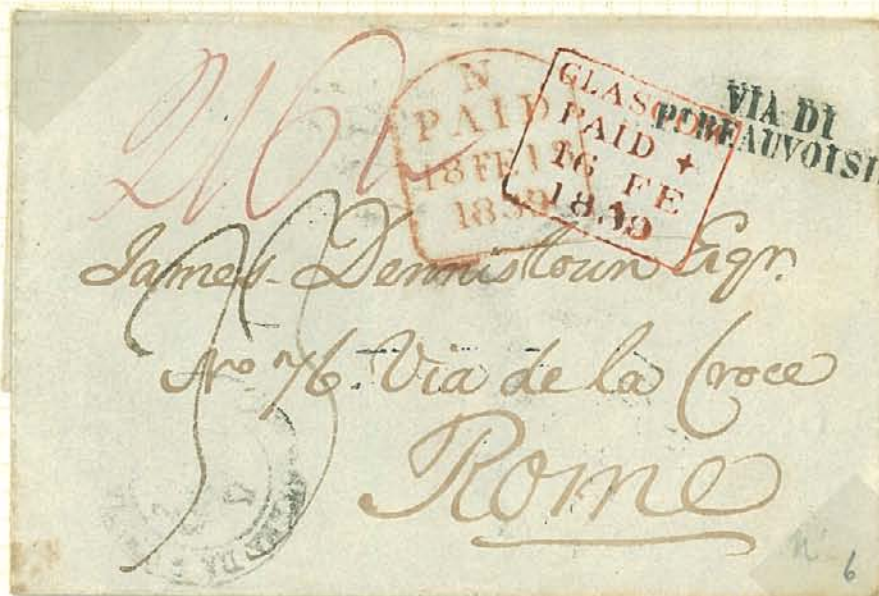 N
PAID
18 FE 18
1839
GLASGOW
PAID +
16 FE
1839
VIA DI
Pt BEAUVOISIN
James Dennistoun Esqr.
No 76. Via de la Croce
Rome
6